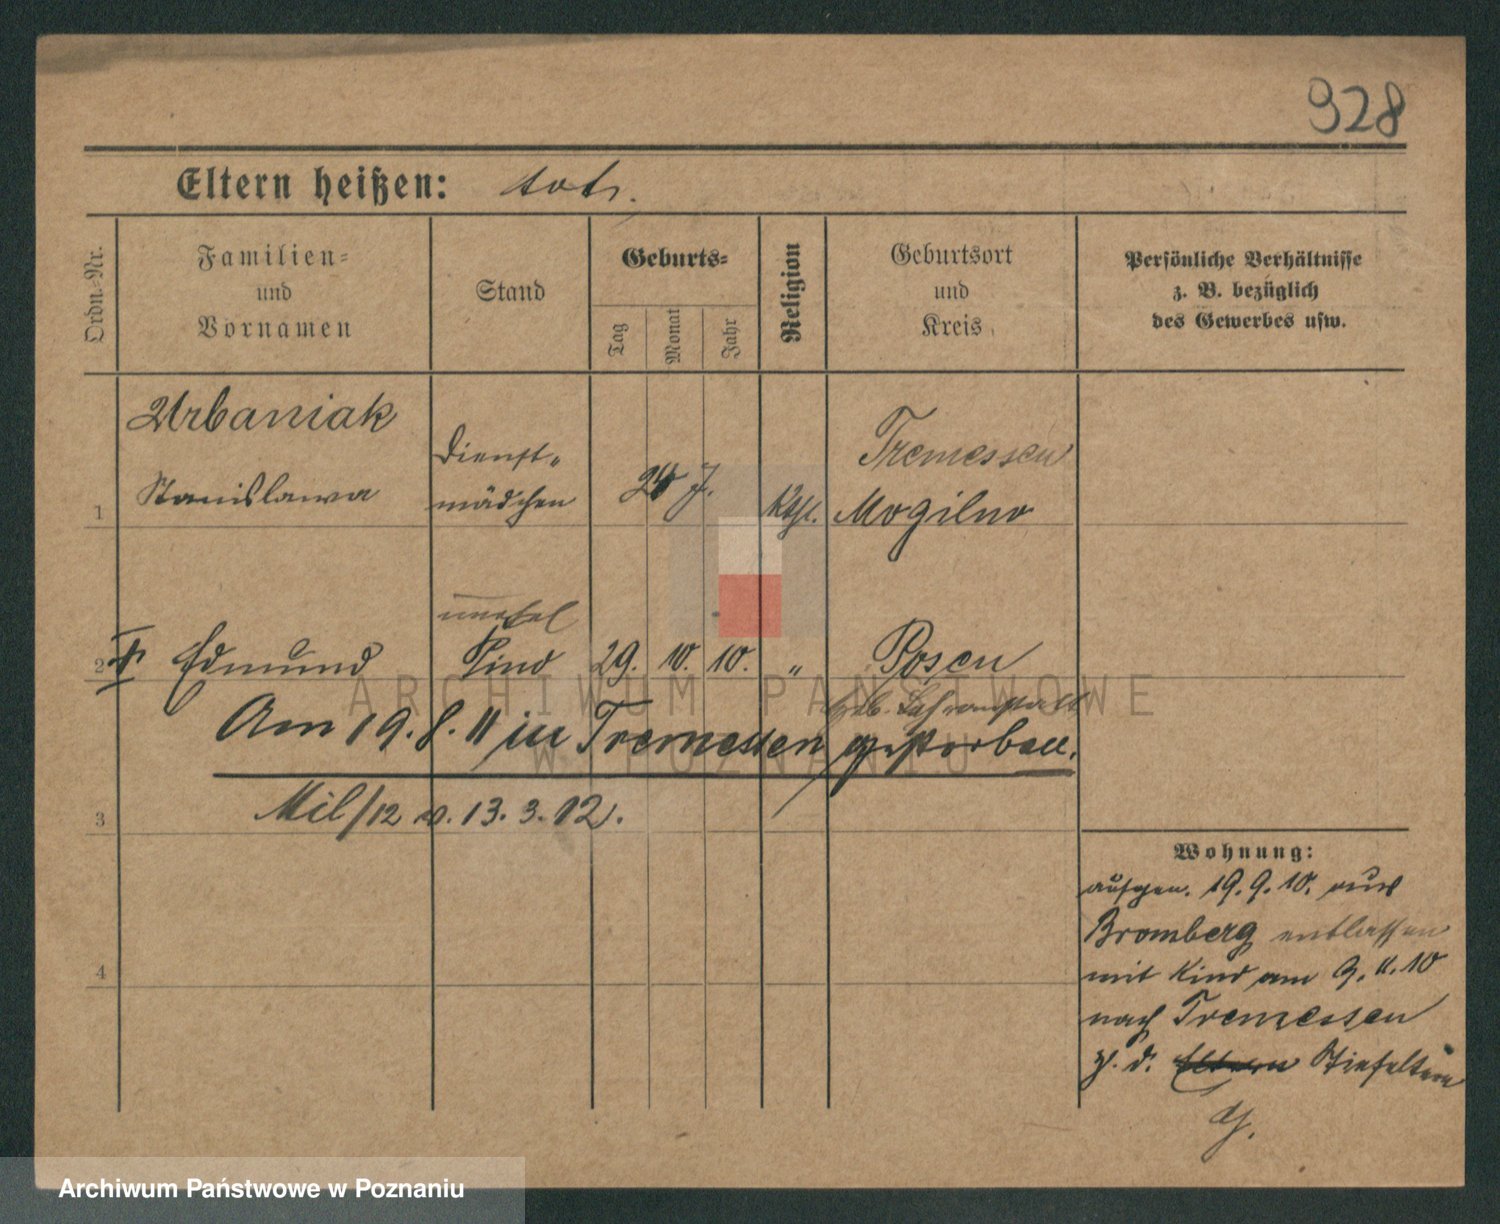 928
Eltern heißen: tot.
Ordn.-Nr.
Familien-
und
Vornamen
Stand
Geburts-
Tag
Monat
Jahr
Religion
Geburtsort
und
Kreis
Persönliche Verhältnisse
z. B. bezüglich
des Gewerbes usw.
1
Urbaniak
Stanislawa
Dienst-
mädchen
J.
Kth.
Tremessen
Mogilno
2
Edmund
unehel
Kind
29. 10. 10.
"
Posen
Heb. Lehranstalt
Am 19. 8. 11 in Tremessen gestorben.
3
Mil/12 v. 13. 3. 12.
4
Wohnung:
aufgen. 19. 9. 10. aus
Bromberg entlassen
mit Kind am 9. 11. 10
nach Tremessen
z. d. Eltern Stiefeltern
ARCHIWUM PAŃSTWOWE
W POZNANIU
Archiwum Państwowe w Poznaniu